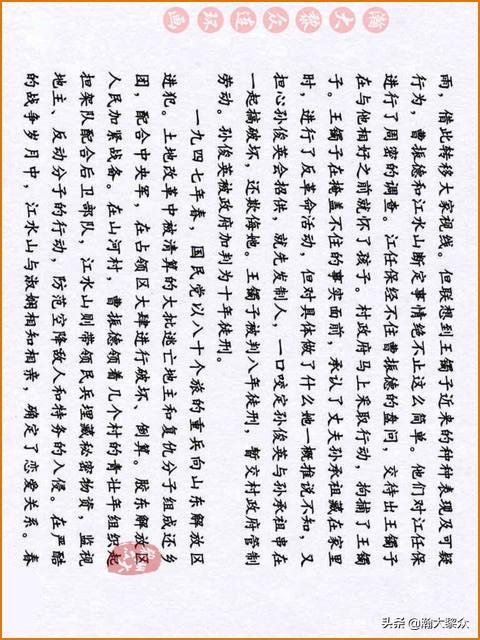 瀚大黎众连环画
雨，借此转移大家视线。但联想到王镯子近来的种种表现及可疑
行为，曹振德和江水山断定事情绝不止这么简单。他们对江任保
进行了周密的调查。江任保经不住曹振德的盘问，交待出王镯子
在与他相好之前就怀了孩子。村政府马上采取行动，拘捕了王镯
子。王镯子在掩盖不住的事实面前，承认了丈夫孙承祖藏在家里
时，进行了反革命活动，但对具体做了什么她一概推说不知，又
担心孙俊英会招供，就先发制人，一口咬定孙俊英与孙承祖串在
一起搞破坏，还欺侮她。王镯子被判八年徒刑，暂交村政府管制
劳动。孙俊英被政府加判为十年徒刑。
一九四七年春，国民党以八十个旅的重兵向山东解放区
进犯。土地改革中被清算的大批逃亡地主和复仇分子组成还乡
团，配合中央军，在占领区大肆进行破坏、倒算。胶东解放区
人民加紧战备。在山河村，曹振德领着几个村的青壮年组织起
担架队配合后卫部队，江水山则带领民兵埋藏秘密物资，监视
地主、反动分子的行动，防范空降敌人和特务的入侵。在严酷
的战争岁月中，江水山与淑娴相知相亲，确定了恋爱关系。春
头条 @瀚大黎众